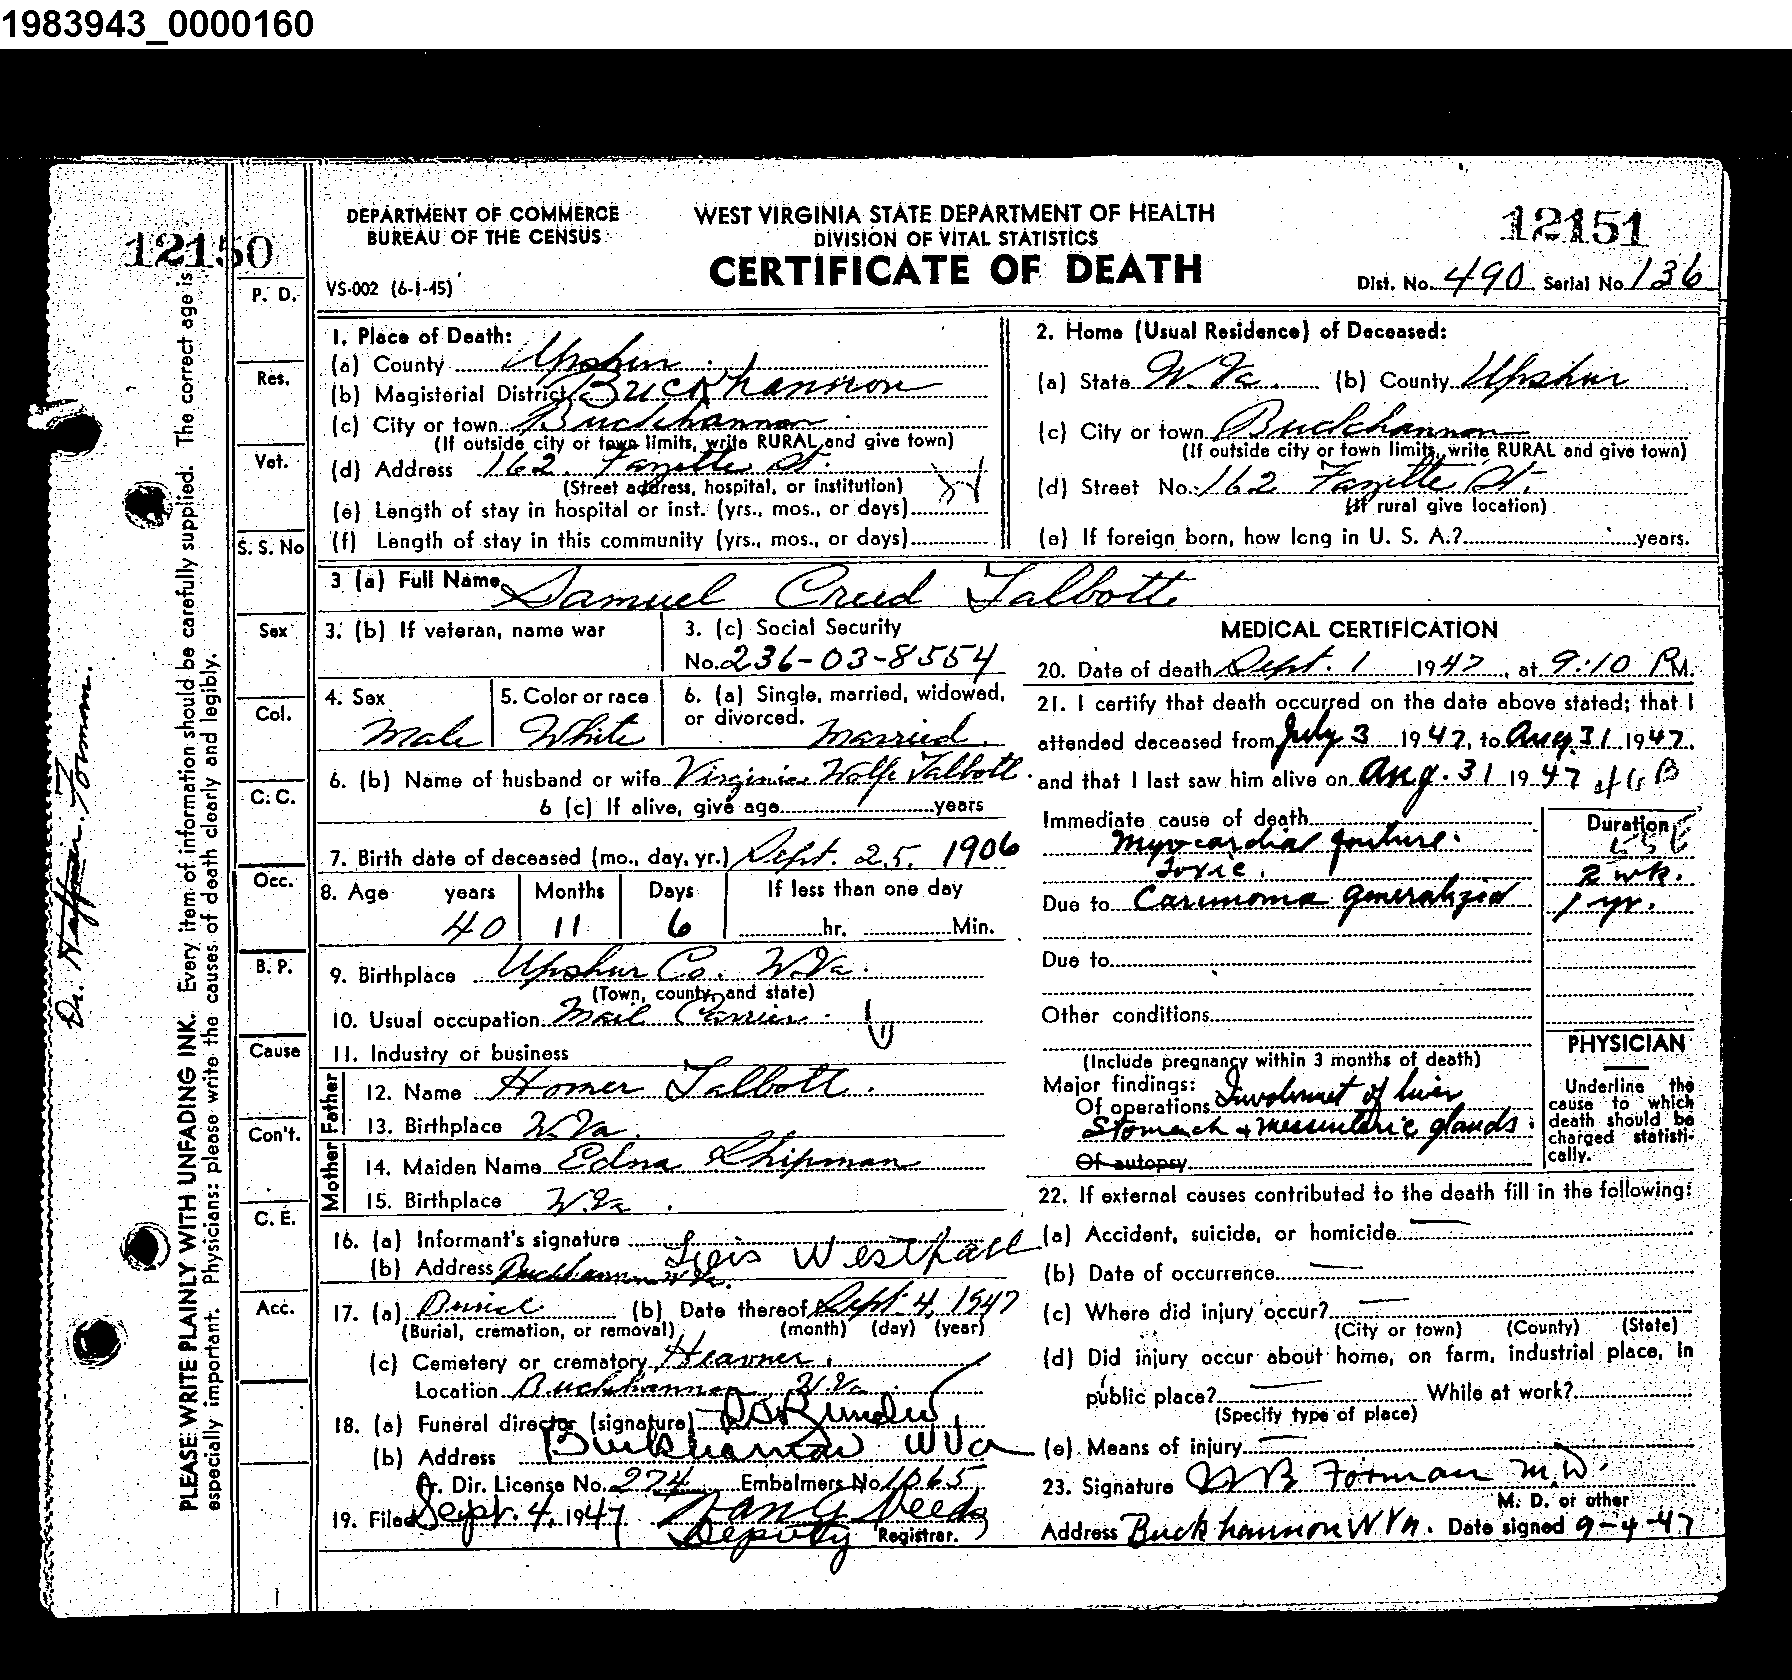 1983943_0000160
DEPARTMENT OF COMMERCE
BUREAU OF THE CENSUS
WEST VIRGINIA STATE DEPARTMENT OF HEALTH
DIVISION OF VITAL STATISTICS
CERTIFICATE OF DEATH
12150
12151
VS-002 (6-1-45)
Dist. No. 490 Serial No 136
PLEASE WRITE PLAINLY WITH UNFADING INK. Every item of information should be carefully supplied. The correct age is
especially important. Physicians: please write the causes of death clearly and legibly.
P. D.
Res.
Vet.
S. S. No
Sex
Col.
C. C.
Occ.
B. P.
Cause
Con't.
C. E.
Acc.
1. Place of Death:
(a) County Upshur
(b) Magisterial District Buckhannon
(c) City or town Buckhannon
(If outside city or town limits, write RURAL and give town)
(d) Address 162 Fayette St.
(Street address, hospital, or institution)
(e) Length of stay in hospital or inst. (yrs., mos., or days)
(f) Length of stay in this community (yrs., mos., or days)
2. Home (Usual Residence) of Deceased:
(a) State W. Va. (b) County Upshur
(c) City or town Buckhannon
(If outside city or town limits, write RURAL and give town)
(d) Street No. 162 Fayette St.
(If rural give location)
(e) If foreign born, how long in U. S. A.? years.
3 (a) Full Name Samuel Creed Talbott
3. (b) If veteran, name war
3. (c) Social Security
No. 236-03-8554
4. Sex
Male
5. Color or race
White
6. (a) Single, married, widowed,
or divorced. Married
6. (b) Name of husband or wife Virginia Wolfe Talbott
6 (c) If alive, give age years
7. Birth date of deceased (mo., day, yr.) Sept. 25, 1906
8. Age years Months Days If less than one day
40 11 6 hr. Min.
9. Birthplace Upshur Co. W.Va.
(Town, county, and state)
10. Usual occupation Mail Carrier
11. Industry or business
Father
12. Name Homer Talbott
13. Birthplace W.Va.
Mother
14. Maiden Name Edna Shipman
15. Birthplace W.Va.
16. (a) Informant's signature Westfall
(b) Address Buckhannon W.Va.
17. (a) (b) Date thereof Sept. 4, 1947
(Burial, cremation, or removal) (month) (day) (year)
(c) Cemetery or crematory Heavner
Location Buckhannon W.Va.
18. (a) Funeral director (signature)
(b) Address Buckhannon W Va
Dir. License No. 274 Embalmers No 1065
19. Filed Sept. 4, 1947
Deputy Registrar.
MEDICAL CERTIFICATION
20. Date of death Sept. 1 1947, at 9:10 P.M.
21. I certify that death occurred on the date above stated; that I
attended deceased from July 3 1947, to Aug. 31 1947.
and that I last saw him alive on Aug. 31 1947
Immediate cause of death
Myocardial failure.
Toxic.
Due to Carcinoma generalized
Due to
Other conditions
(Include pregnancy within 3 months of death)
Major findings:
Of operations Involvment of liver
Stomach + messenteric glands.
Of autopsy
Duration
2 wk.
1 yr.
PHYSICIAN
Underline the
cause to which
death should be
charged statisti-
cally.
22. If external causes contributed to the death fill in the following:
(a) Accident, suicide, or homicide
(b) Date of occurrence
(c) Where did injury occur?
(City or town) (County) (State)
(d) Did injury occur about home, on farm, industrial place, in
public place? While at work?
(Specify type of place)
(e) Means of injury
23. Signature Forman M.D.
M. D. or other
Address Buckhannon W Va. Date signed 9-4-47